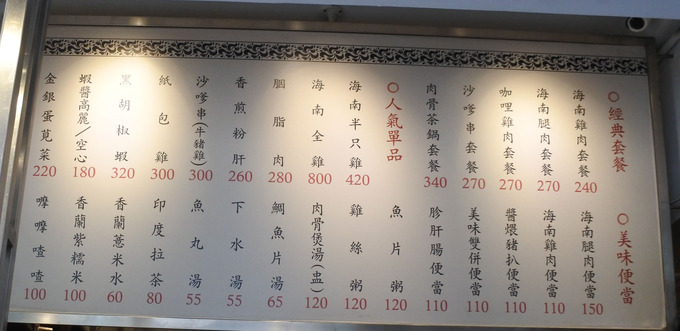 經典套餐
海南雞肉套餐 240
海南腿肉套餐 270
咖哩雞肉套餐 270
沙嗲串套餐 270
肉骨茶鍋套餐 340
人氣單品
海南半只雞 420
海南全雞 800
胭脂肉 280
香煎粉肝 260
沙嗲串(牛豬雞) 300
紙包雞 300
黑胡椒蝦 320
蝦醬高麗/空心 180
金銀蛋莧菜 220
美味便當
海南腿肉便當 150
海南雞肉便當 110
醬煨豬扒便當 110
美味雙併便當 110
胗肝腸便當 110
魚片粥 120
雞絲粥 120
肉骨煲湯(盅) 120
鯛魚片湯 65
下水湯 55
魚丸湯 55
印度拉茶 80
香蘭薏米水 60
香蘭紫糯米 100
嚤嚤喳喳 100